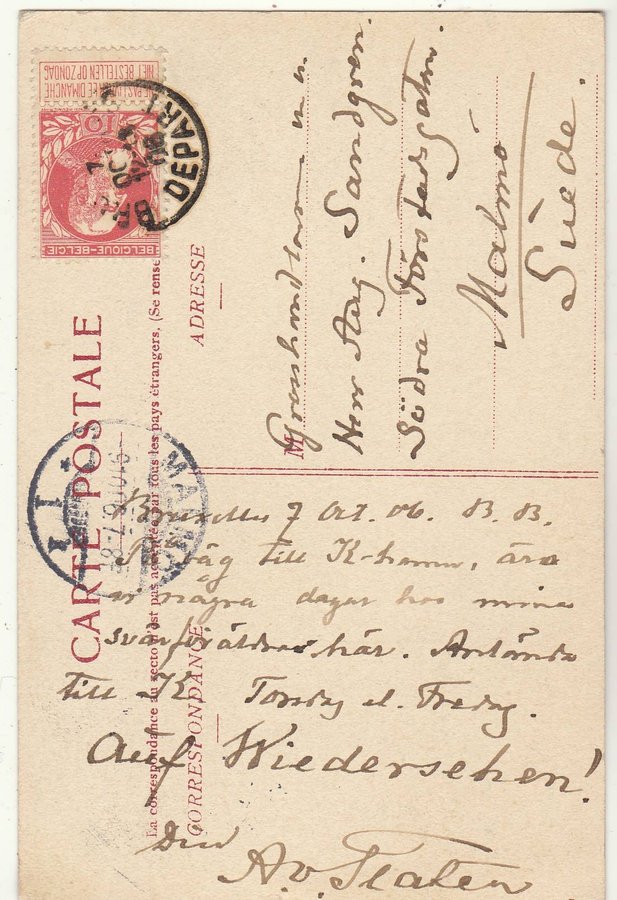 CARTE POSTALE
La correspondance au recto n'est pas acceptée par tous les pays étrangers. (Se rense
CORRESPONDANCE
ADRESSE
NE PAS LIVRER LE DIMANCHE
NIET BESTELLEN OP ZONDAG
10
BELGIQUE-BELGIE
DEPART
7 OCT
Bruxelles 7 Oct. 06. B. B.
På väg till K-hamn, äro
vi några dagar hos mina
svärföräldrar här. Anlända
till K. Torsdag el. Fredag.
Auf Wiedersehen!
Din
A. v. Platen
M
Grosshandlaren m. m.
Herr Aug. Sandgren.
Södra Förstadsgatan.
Malmö
Suède.